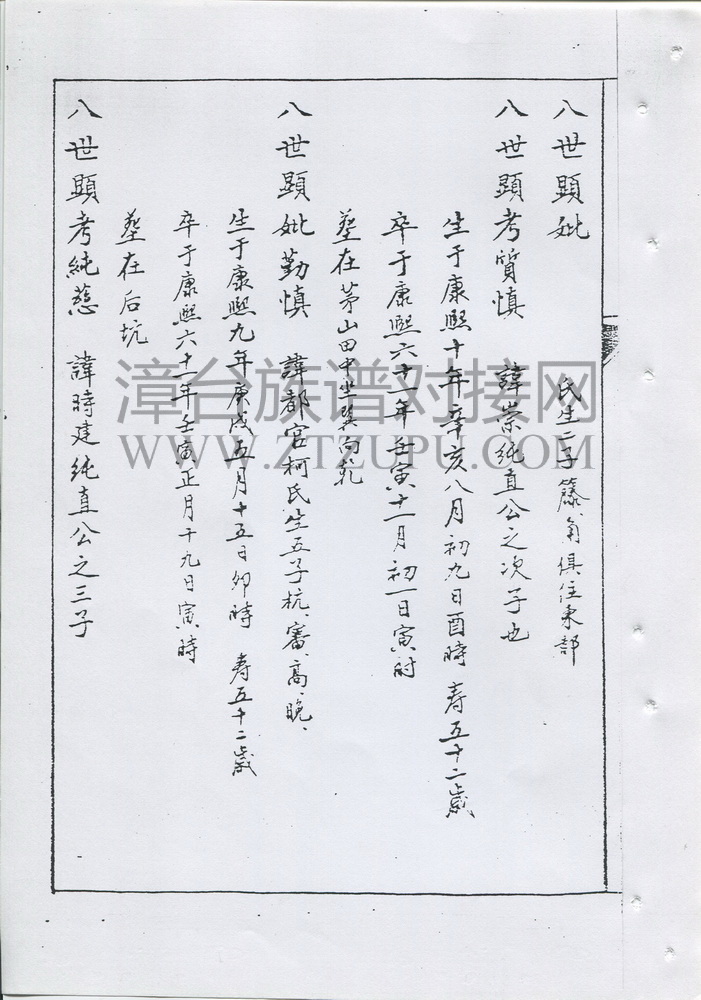 八世顯妣 氏生二子籐、角俱住東部
八世顯考質慎 諱崇純直公之次子也
生于康熙十年辛亥八月初九日酉時 壽五十二歲
卒于康熙六十一年壬寅十一月初一日寅时
塟在茅山田中坐巽向乾
八世顯妣勤慎 諱都宫柯氏生五子杭、審、高、晚、
生于康熙九年庚戍五月十五日卯時 寿五十二歲
卒于康熙六十一年壬寅正月十九日寅時
塟在后坑
八世顯考純慈 諱時建純直公之三子
漳台族谱对接网
WWW.ZTZUPU.COM